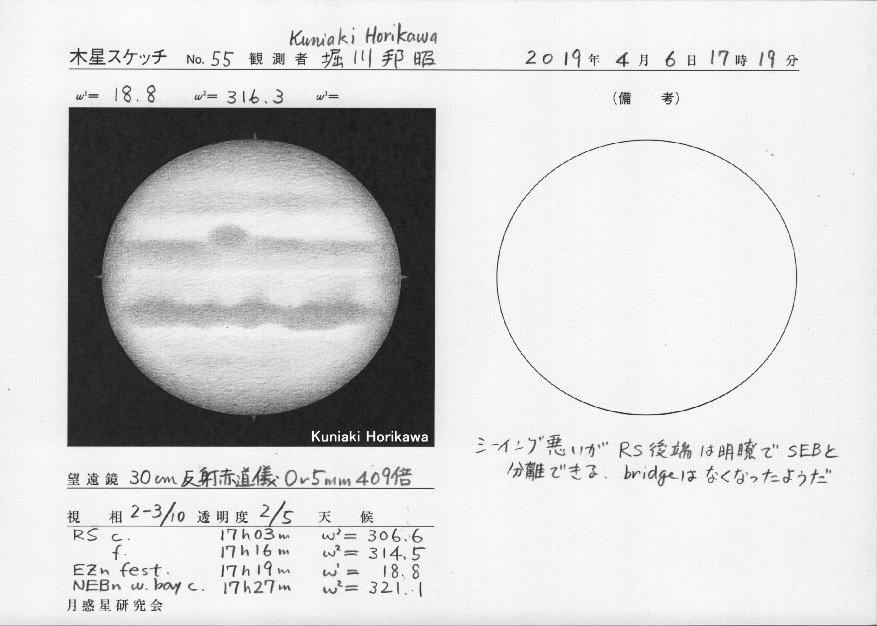 Kuniaki Horikawa
木星スケッチ No. 55 観測者 堀川邦昭 2019年 4月 6日 17時 19分
ω¹= 18.8 ω²= 316.3 ω³=
(備 考)
Kuniaki Horikawa
シーイング悪いが RS後端は明瞭でSEBと
分離できる. bridgeはなくなったようだ
望遠鏡 30cm反射赤道儀 Or5mm 409倍
視 相 2-3/10 透明度 2/5 天 候
RS c. 17h03m ω²= 306.6
f. 17h16m ω²= 314.5
EZn fest. 17h19m ω¹= 18.8
NEBn w. bay c. 17h27m ω²= 321.1
月惑星研究会